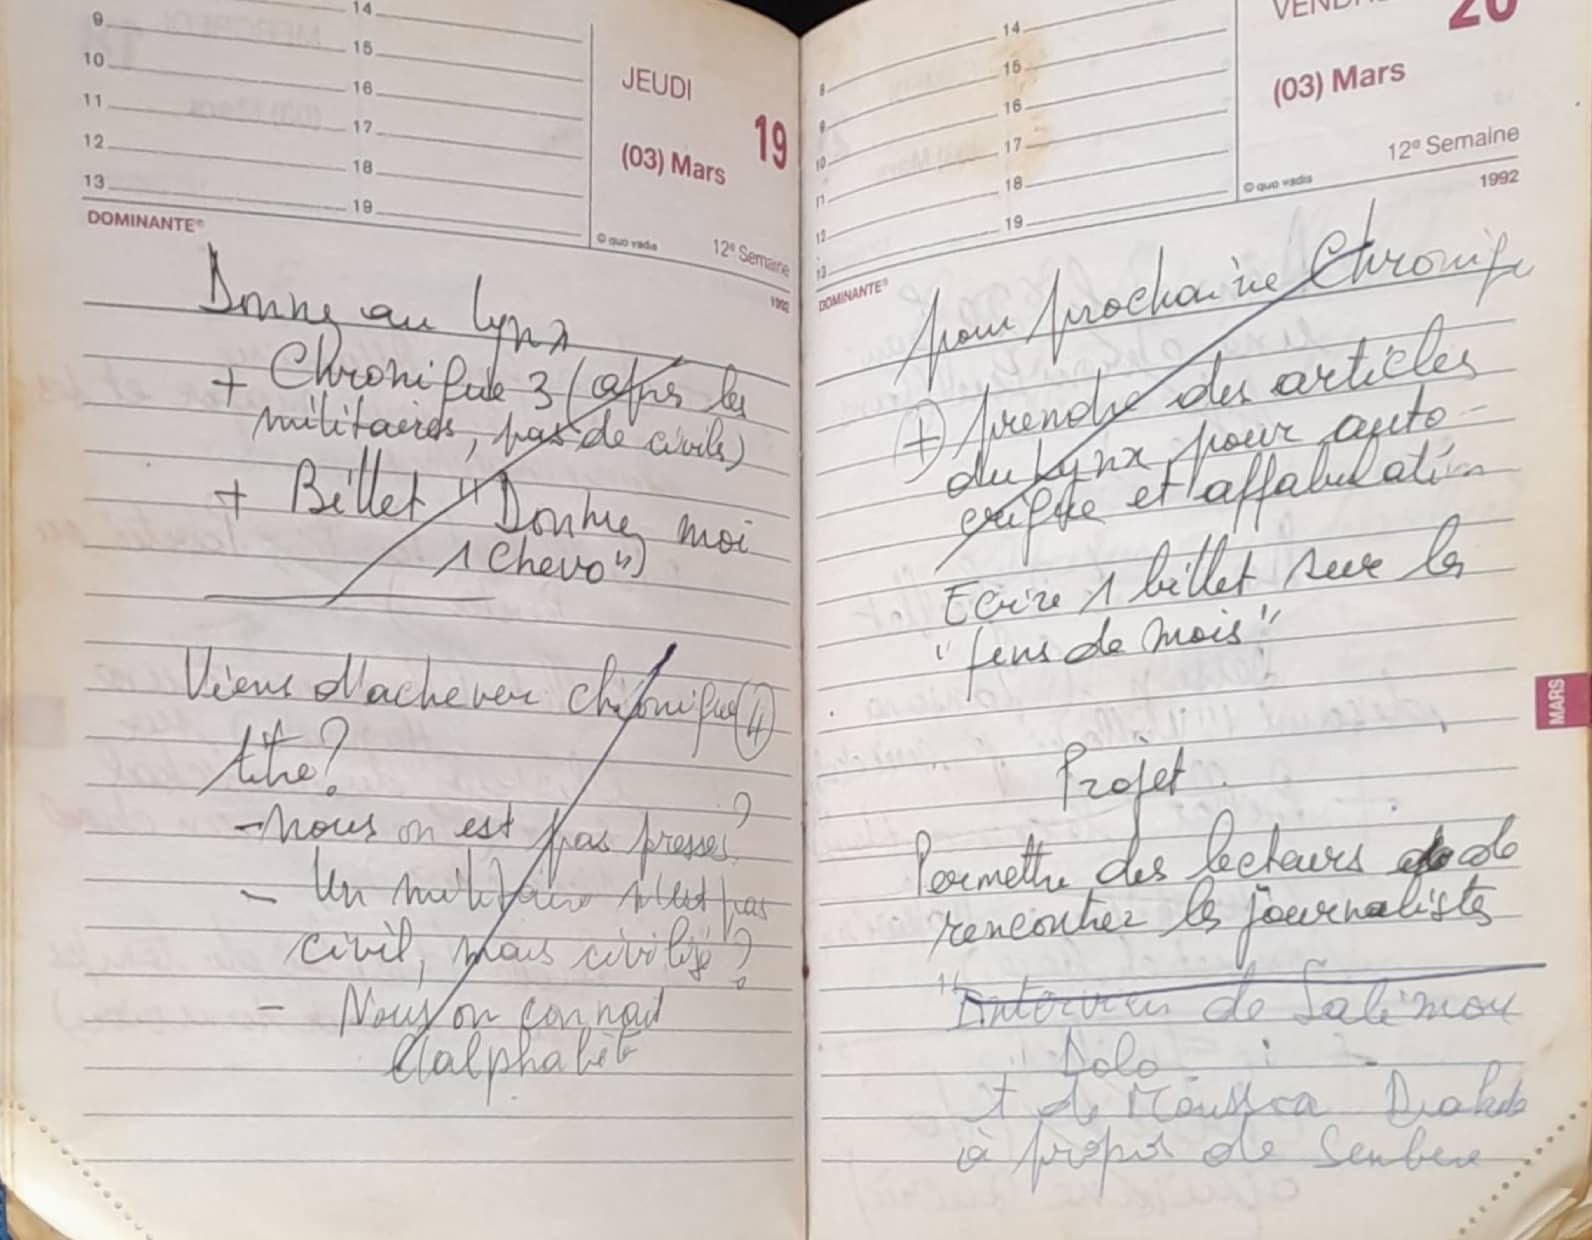 9 14
10 15
11 16
12 17
13 18
19
JEUDI
19
(03) Mars
DOMINANTE®
© quo vadis
12e Semaine
1992
Donné au Lynx
+ Chronique 3 (après les
militaires, pas de civils)
+ Billet "Donne moi
1 Chevo")
Viens d'achever chronique (4)
titre?
- Nous on est pas pressés?
- Un militaire n'est pas
civil, mais civilisé?
- Nous on connait
l'alphabet
8 14
9 15
10 16
11 17
12 18
13 19
VENDR
20
(03) Mars
12e Semaine
© quo vadis
1992
DOMINANTE®
pour prochaine Chronique
+ prendre des articles
du Lynx pour auto-
critique et affabulation
Ecrire 1 billet sur les
"fins de mois"
MARS
Projet
Permettre des lecteurs de
rencontrer les journalistes
"Interview de Salimou
" Dolo :
+ de Moussa Diakité
à propos de